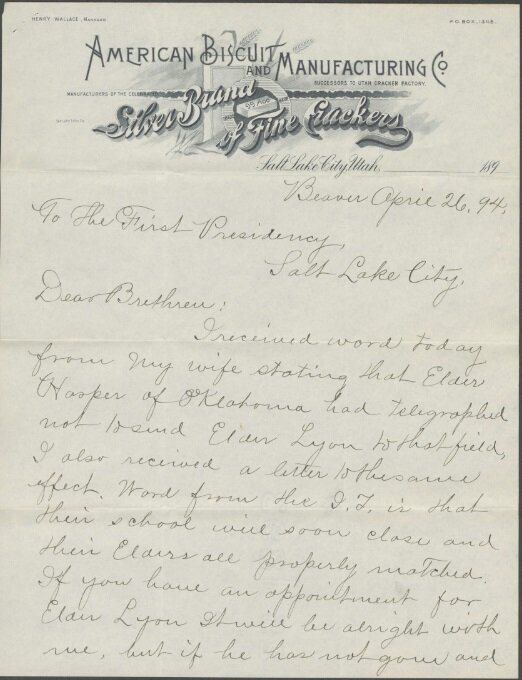 HENRY WALLACE, MANAGER
P.O. BOX, 1308.
AMERICAN BISCUIT AND MANUFACTURING CO
SUCCESSORS TO UTAH CRACKER FACTORY.
MANUFACTURERS OF THE CELEBRATED
Silver Brand
of Fine Crackers
Salt Lake City, Utah, 189
Beaver April 26, 94,
To the First Presidency,
Salt Lake City,
Dear Brethren:
I received word today
from my wife stating that Elder
Harper of Oklahoma had telegraphed
not to send Elder Lyon to that field,
I also received a letter to the same
effect. Word from the I.T. is that
their school will soon close and
their Elders all properly matched.
If you have an appointment for
Elder Lyon It will be alright with
me, but if he has not gone and